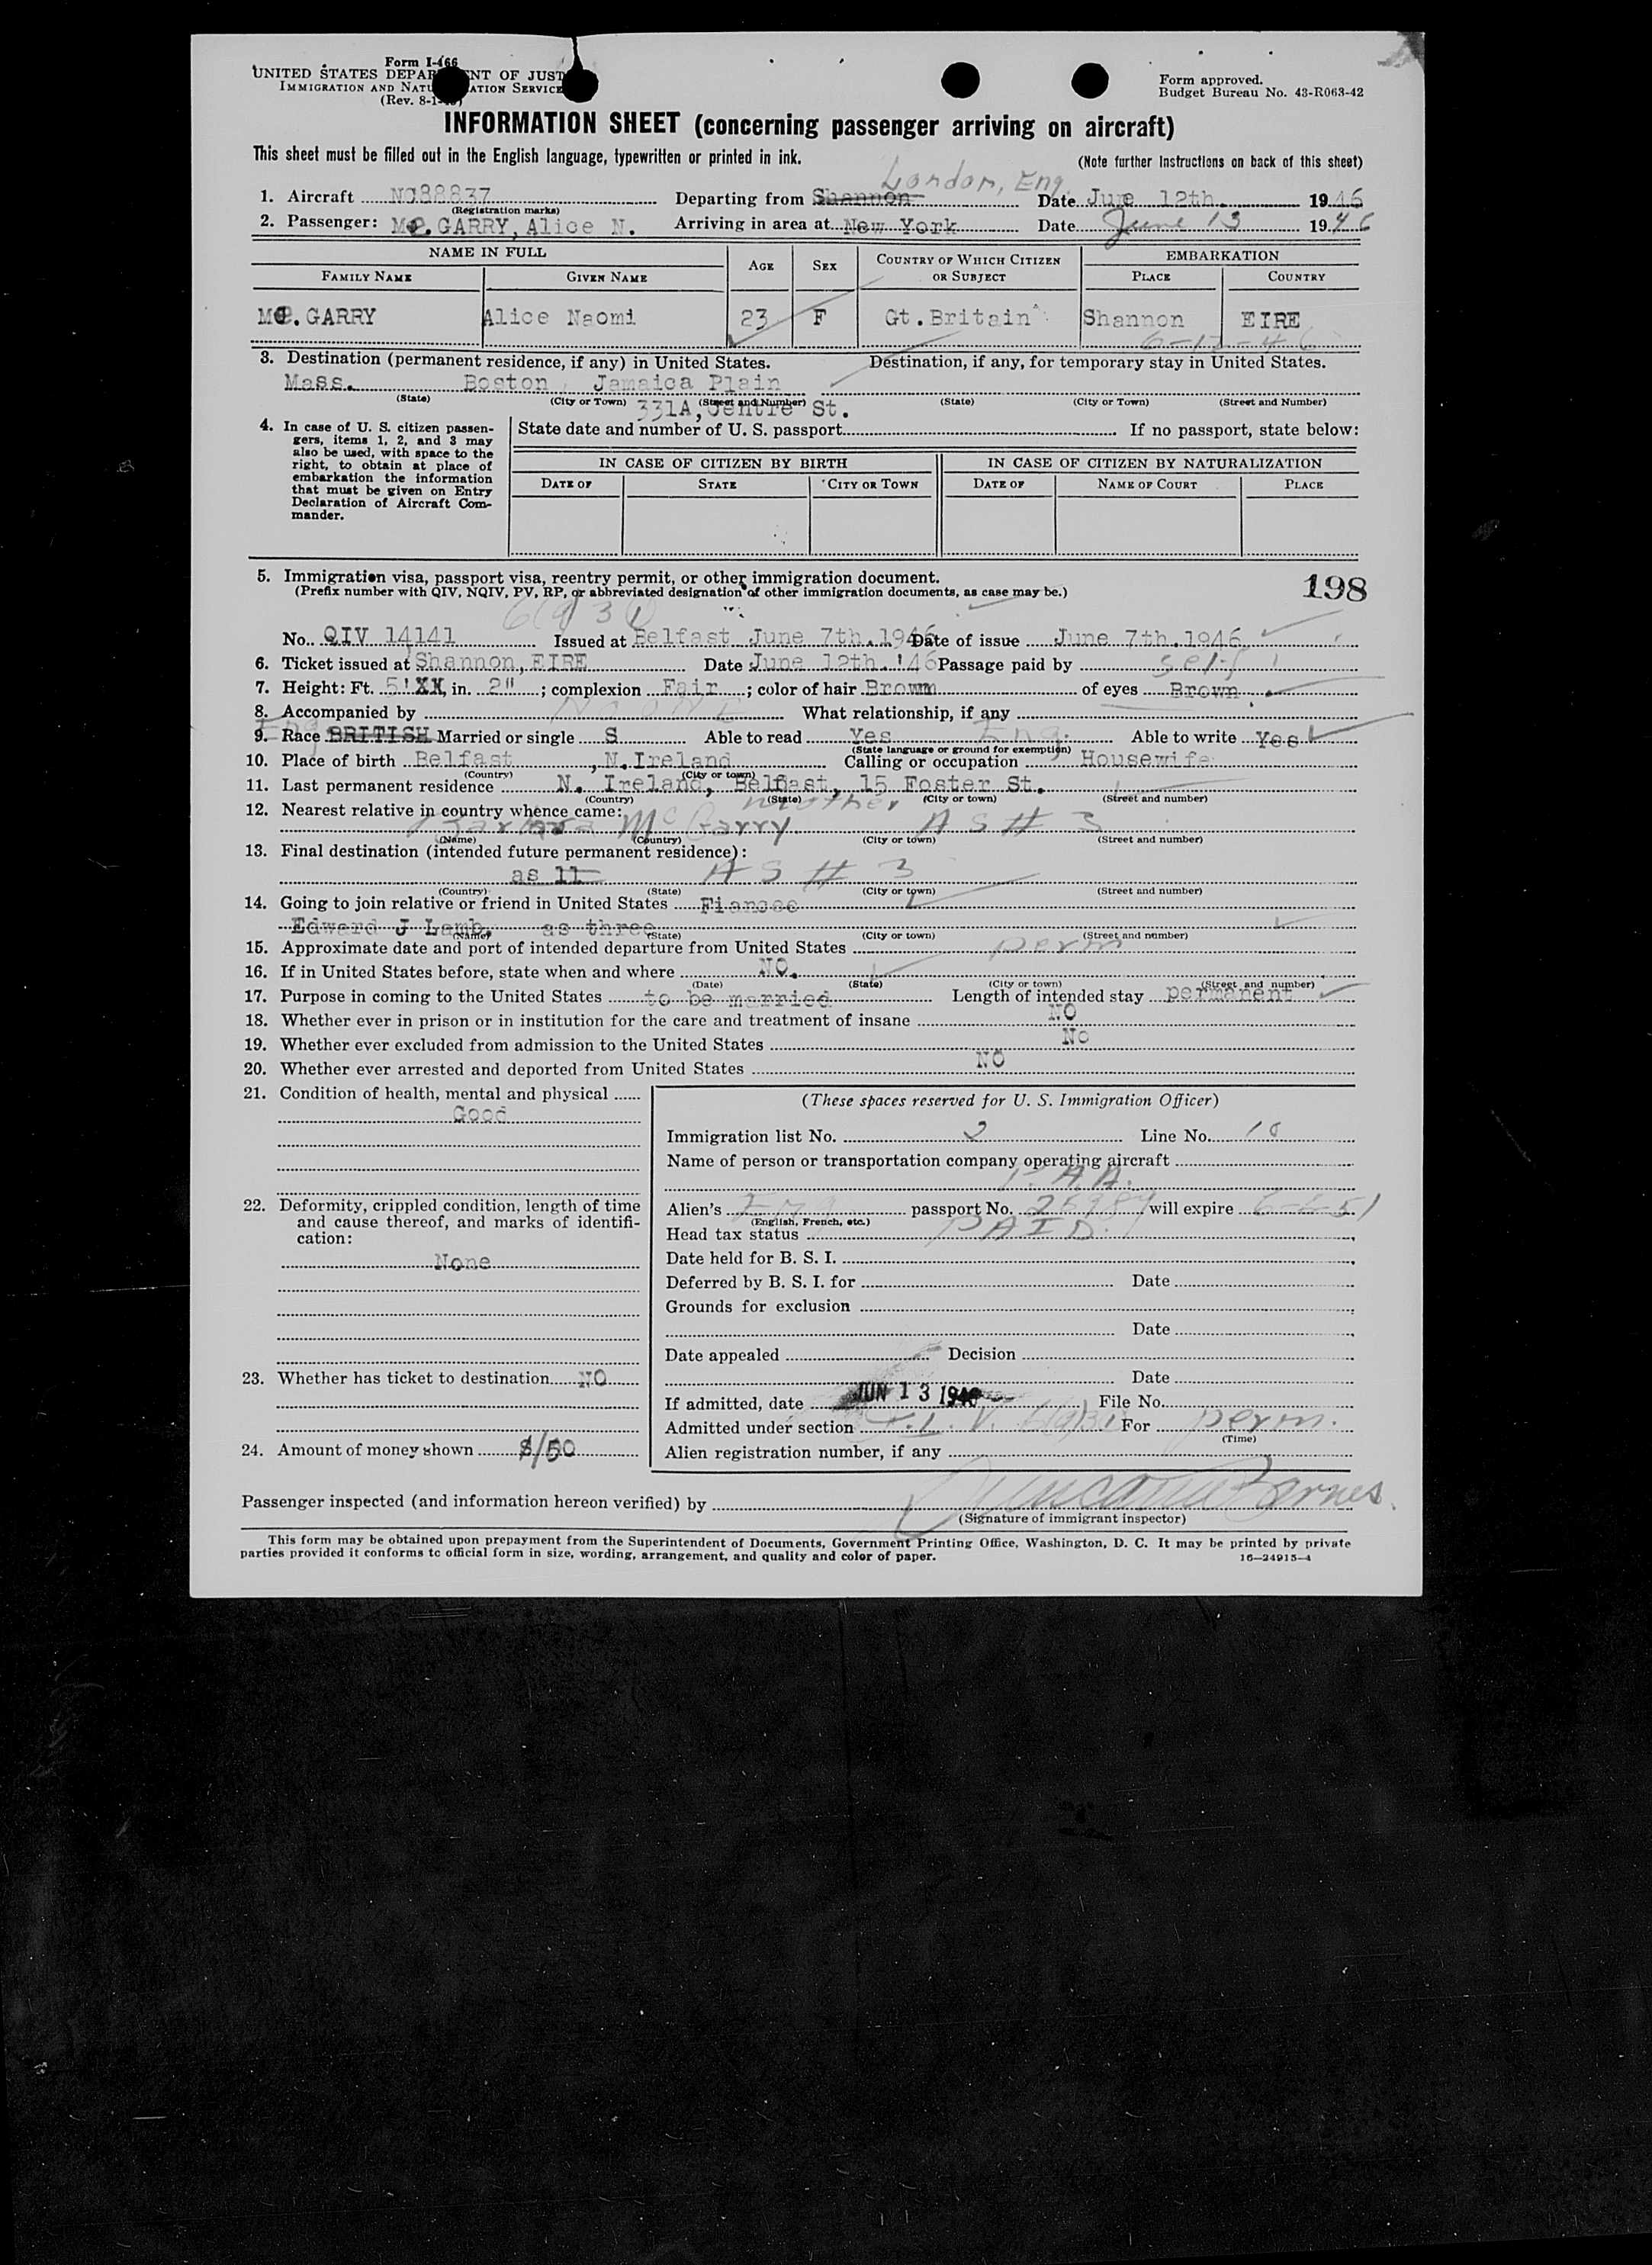 Form I-466
UNITED STATES DEPAR NT OF JUST
IMMIGRATION AND NATU ATION SERVICE
(Rev. 8-1-
Form approved.
Budget Bureau No. 43-R063-42
INFORMATION SHEET (concerning passenger arriving on aircraft)
This sheet must be filled out in the English language, typewritten or printed in ink.
(Note further instructions on back of this sheet)
London, Eng.
1. Aircraft NC88837 Departing from Shannon Date June 12th. 1946
(Registration marks)
2. Passenger: Mc.GARRY, Alice N. Arriving in area at New York Date June 13 1946
NAME IN FULL AGE SEX COUNTRY OF WHICH CITIZEN OR SUBJECT EMBARKATION
FAMILY NAME GIVEN NAME PLACE COUNTRY
Mc.GARRY Alice Naomi 23 F Gt.Britain Shannon EIRE
6-12-46
3. Destination (permanent residence, if any) in United States. Destination, if any, for temporary stay in United States.
Mass. Boston Jamaica Plain
(State) (City or Town) (Street and Number) (State) (City or Town) (Street and Number)
331A, Centre St.
4. In case of U. S. citizen passen-
gers, items 1, 2, and 3 may
also be used, with space to the
right, to obtain at place of
embarkation the information
that must be given on Entry
Declaration of Aircraft Com-
mander.
State date and number of U. S. passport If no passport, state below:
IN CASE OF CITIZEN BY BIRTH IN CASE OF CITIZEN BY NATURALIZATION
DATE OF STATE CITY OR TOWN DATE OF NAME OF COURT PLACE
5. Immigration visa, passport visa, reentry permit, or other immigration document.
(Prefix number with QIV, NQIV, PV, RP, or abbreviated designation of other immigration documents, as case may be.)
198
No. QIV 14141 Issued at Belfast June 7th. 1946 Date of issue June 7th. 1946
6. Ticket issued at Shannon, EIRE Date June 12th. '46 Passage paid by self
7. Height: Ft. 5'XX in. 2"; complexion Fair; color of hair Brown of eyes Brown
8. Accompanied by NONE What relationship, if any
Eng
9. Race BRITISH Married or single S Able to read Yes Eng. Able to write Yes
(State language or ground for exemption)
10. Place of birth Belfast, N.Ireland Calling or occupation Housewife
(Country) (City or town)
11. Last permanent residence N. Ireland, Belfast, 15 Foster St.
(Country) (State) (City or town) (Street and number)
12. Nearest relative in country whence came: mother
McGarry AS # 3
(Name) (Country) (City or town) (Street and number)
13. Final destination (intended future permanent residence):
as 11 AS # 3
(Country) (State) (City or town) (Street and number)
14. Going to join relative or friend in United States Fiancee
Edward J Lamb, as three
(Name) (State) (City or town) (Street and number)
15. Approximate date and port of intended departure from United States perm
16. If in United States before, state when and where NO.
(Date) (State) (City or town) (Street and number)
17. Purpose in coming to the United States to be married Length of intended stay permanent
18. Whether ever in prison or in institution for the care and treatment of insane NO
19. Whether ever excluded from admission to the United States No
20. Whether ever arrested and deported from United States NO
21. Condition of health, mental and physical
Good
22. Deformity, crippled condition, length of time
and cause thereof, and marks of identifi-
cation:
None
23. Whether has ticket to destination NO
24. Amount of money shown $/50
(These spaces reserved for U. S. Immigration Officer)
Immigration list No. 2 Line No. 10
Name of person or transportation company operating aircraft
P.A.A.
Alien's Eng passport No. 26984 will expire 6-6-51
(English, French, etc.)
Head tax status PAID.
Date held for B. S. I.
Deferred by B. S. I. for Date
Grounds for exclusion
Date
Date appealed Decision
Date
If admitted, date JUN 13 1946 File No.
Admitted under section For perm.
(Time)
Alien registration number, if any
Passenger inspected (and information hereon verified) by
(Signature of immigrant inspector)
This form may be obtained upon prepayment from the Superintendent of Documents, Government Printing Office, Washington, D. C. It may be printed by private
parties provided it conforms to official form in size, wording, arrangement, and quality and color of paper. 16—24915-4